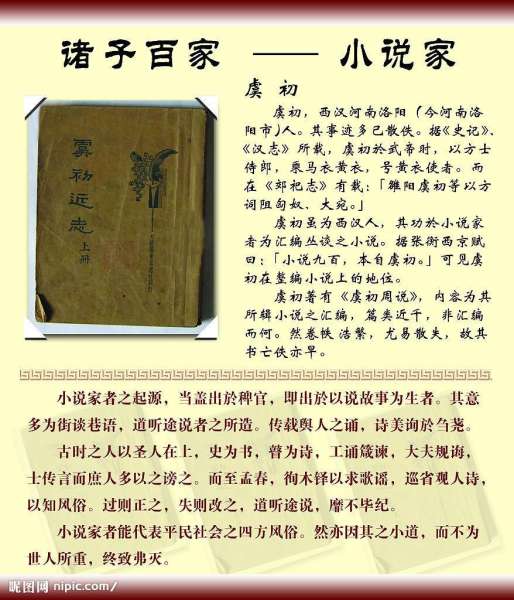 诸子百家 —— 小说家
虞 初
虞初，西汉河南洛阳（今河南洛
阳市)人。其事迹多已散佚。据《史记》、
《汉志》所载，虞初於武帝时，以方士
侍郎，乘马衣黄衣，号黄衣使者。而
在《郊祀志》有载：「雒阳虞初等以方
词阻匈奴、大宛。」
虞初虽为西汉人，其功於小说家
者为汇编丛谈之小说。据张衡西京赋
曰：「小说九百，本自虞初。」可见虞
初在整编小说上的地位。
虞初著有《虞初周说》，内容为其
所辑小说之汇编，篇类近千，非汇编
而何。然卷帙浩繁，尤易散失，故其
书亡佚亦早。
虞初近志 上册
小说家者之起源，当盖出於稗官，即出於以说故事为生者。其意
多为街谈巷语，道听途说者之所造。传载舆人之诵，诗美询於刍荛。
古时之人以圣人在上，史为书，瞽为诗，工诵箴谏，大夫规诲，
士传言而庶人多以之谤之。而至孟春，徇木铎以求歌谣，巡省观人诗，
以知风俗。过则正之，失则改之，道听途说，靡不毕纪。
小说家者能代表平民社会之四方风俗。然亦因其之小道，而不为
世人所重，终致弗灭。
昵图网 nipic.com/